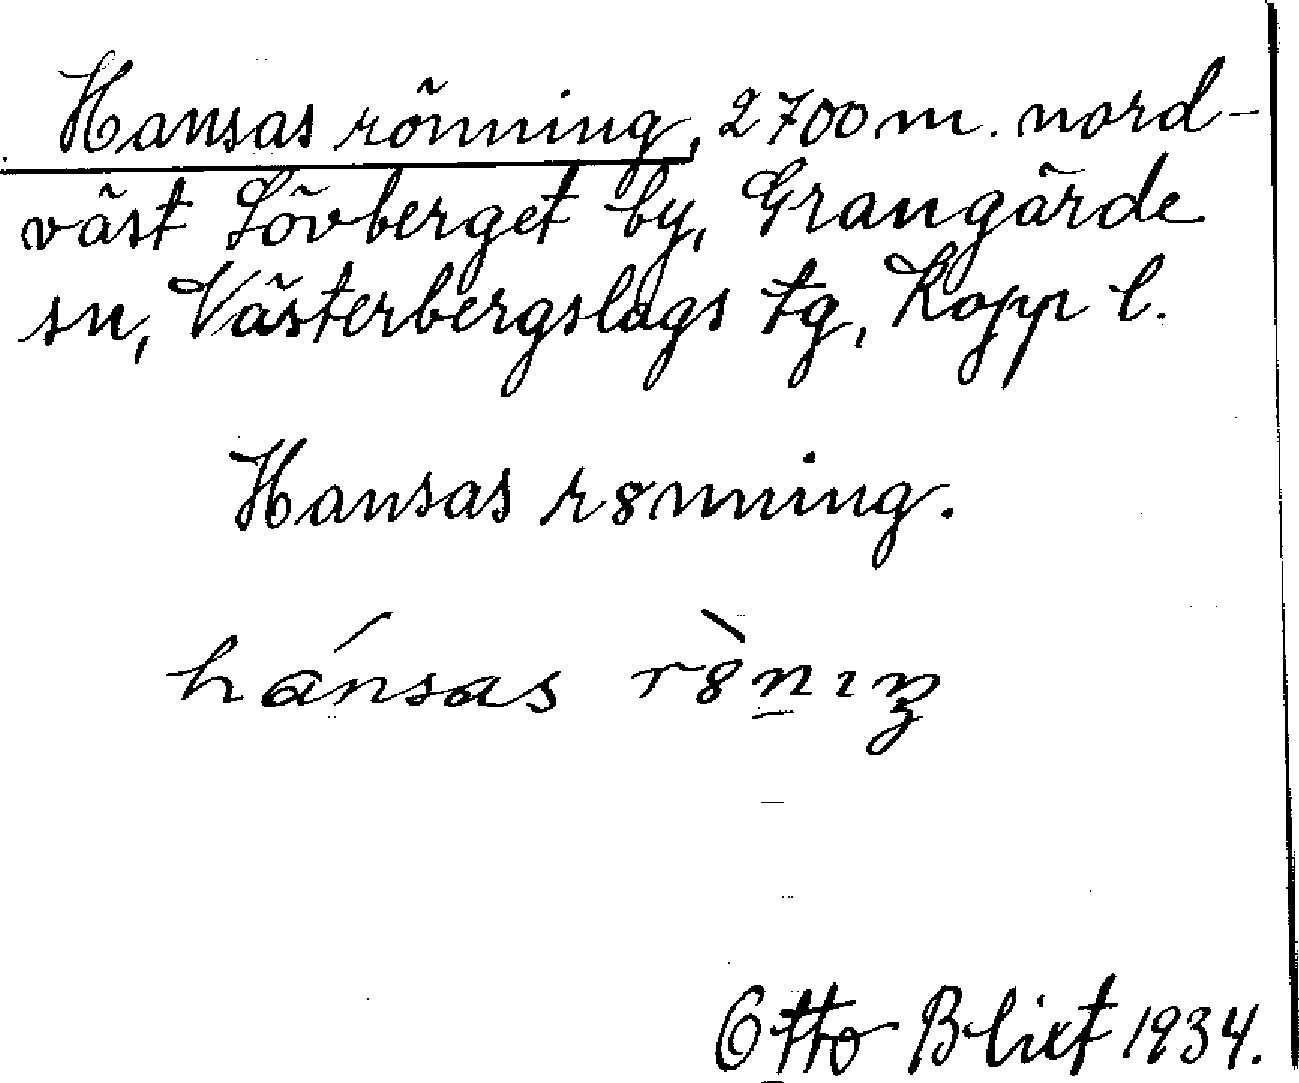 Hansas rönning, 2700 m. nord-
väst Lövberget by, Grangärde
sn, Västerbergslags tg, Kopp l.
Hansas r8nning.
hánsas r8̀n̲ıŋ
Otto Blixt 1934.